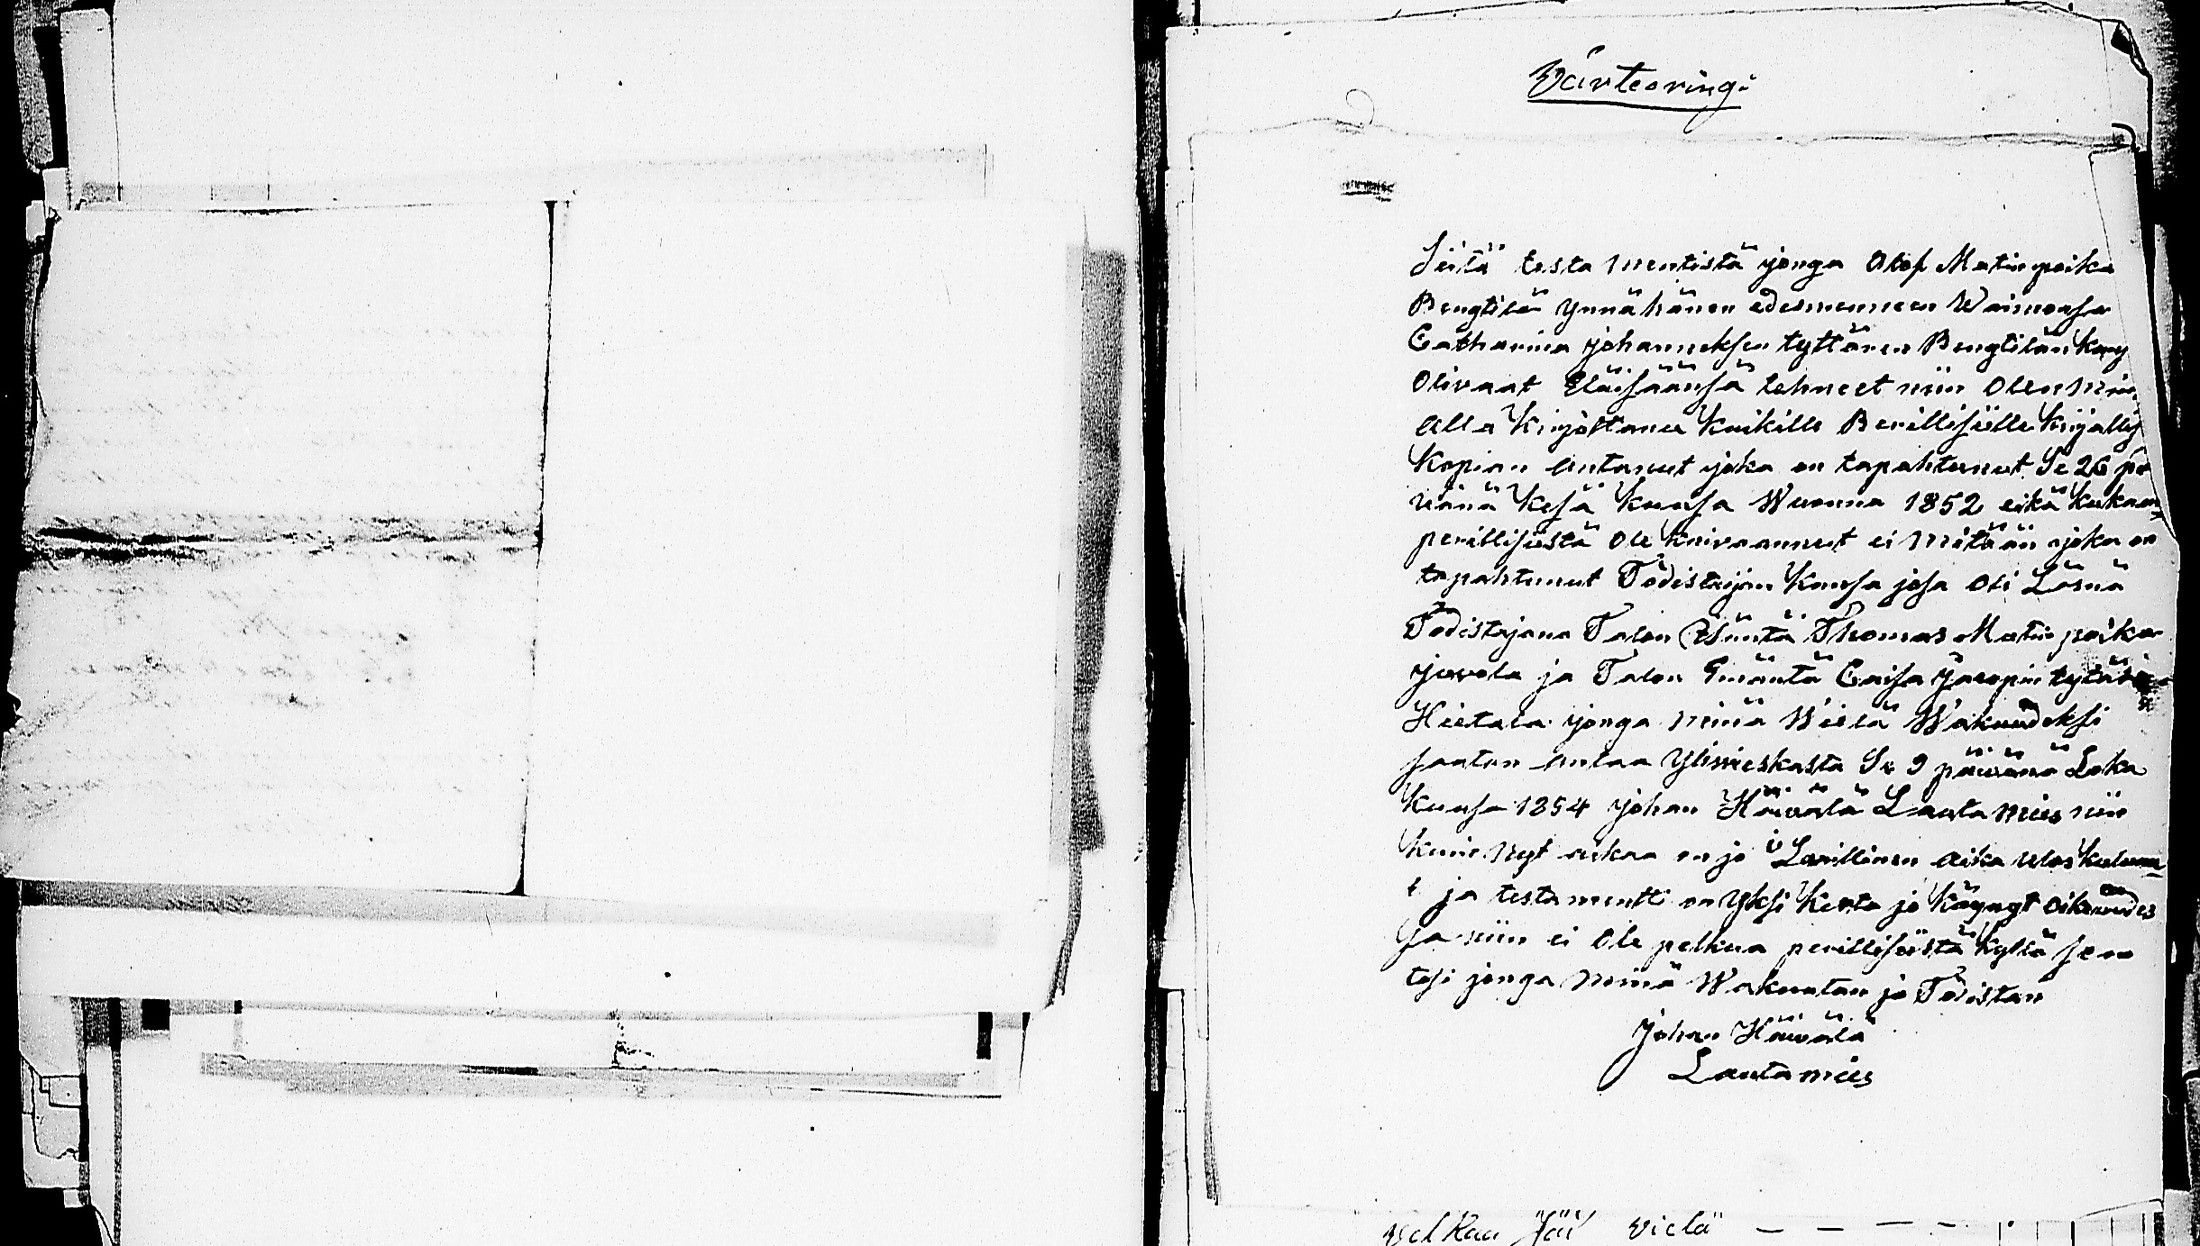 Värteeringi
Siitä testa mentistä jonga Olof Matinpoika
Bengtilän Ynnä hänen edesmenneen Waimonsa
Catharina johanneksen tyttären Bengtilän kans
Olivaat Eläisäänsä tehneet niin Olen Minä
alla Kirjoittanu Kaikille Perillisille kirjallis
Kopian antanut joka on tapahtunut Se 26 päi
vänä Kesä Kuusa Wuonna 1852 eikä kukaan
perillisistä Ole Kaivaannut ei Mitään joka on
tapahtunut Todistajan Kansa josa Oli Läsnä
Todistajana Talon Isäntä Thomas Matin poika
juvola ja Talon Emäntä Caisa Jacopin tytär
Hietala jonga minä Wielä Wakuudeksi
saatan antaa Ylivieskasta Se 9 päiwänä Loka
Kuusa 1854 Johan Häivälä Lauta mies niin
kuin Nyt aukaa on jo Laillinen aika ulos kulunu
t ja testamentti on Yksi Kerta jo Käynyt Oikeudes
sa niin ei Ole pelkua perillisistä Kyllä se on
tosi jonga Minä Wakuutan ja Todistan
Johan Häivälä
Lautamies
velkaa Jäi vielä